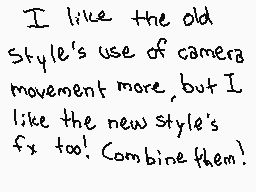 I like the old
style's use of camera
movement more, but I
like the new style's
fx too! Combine them!